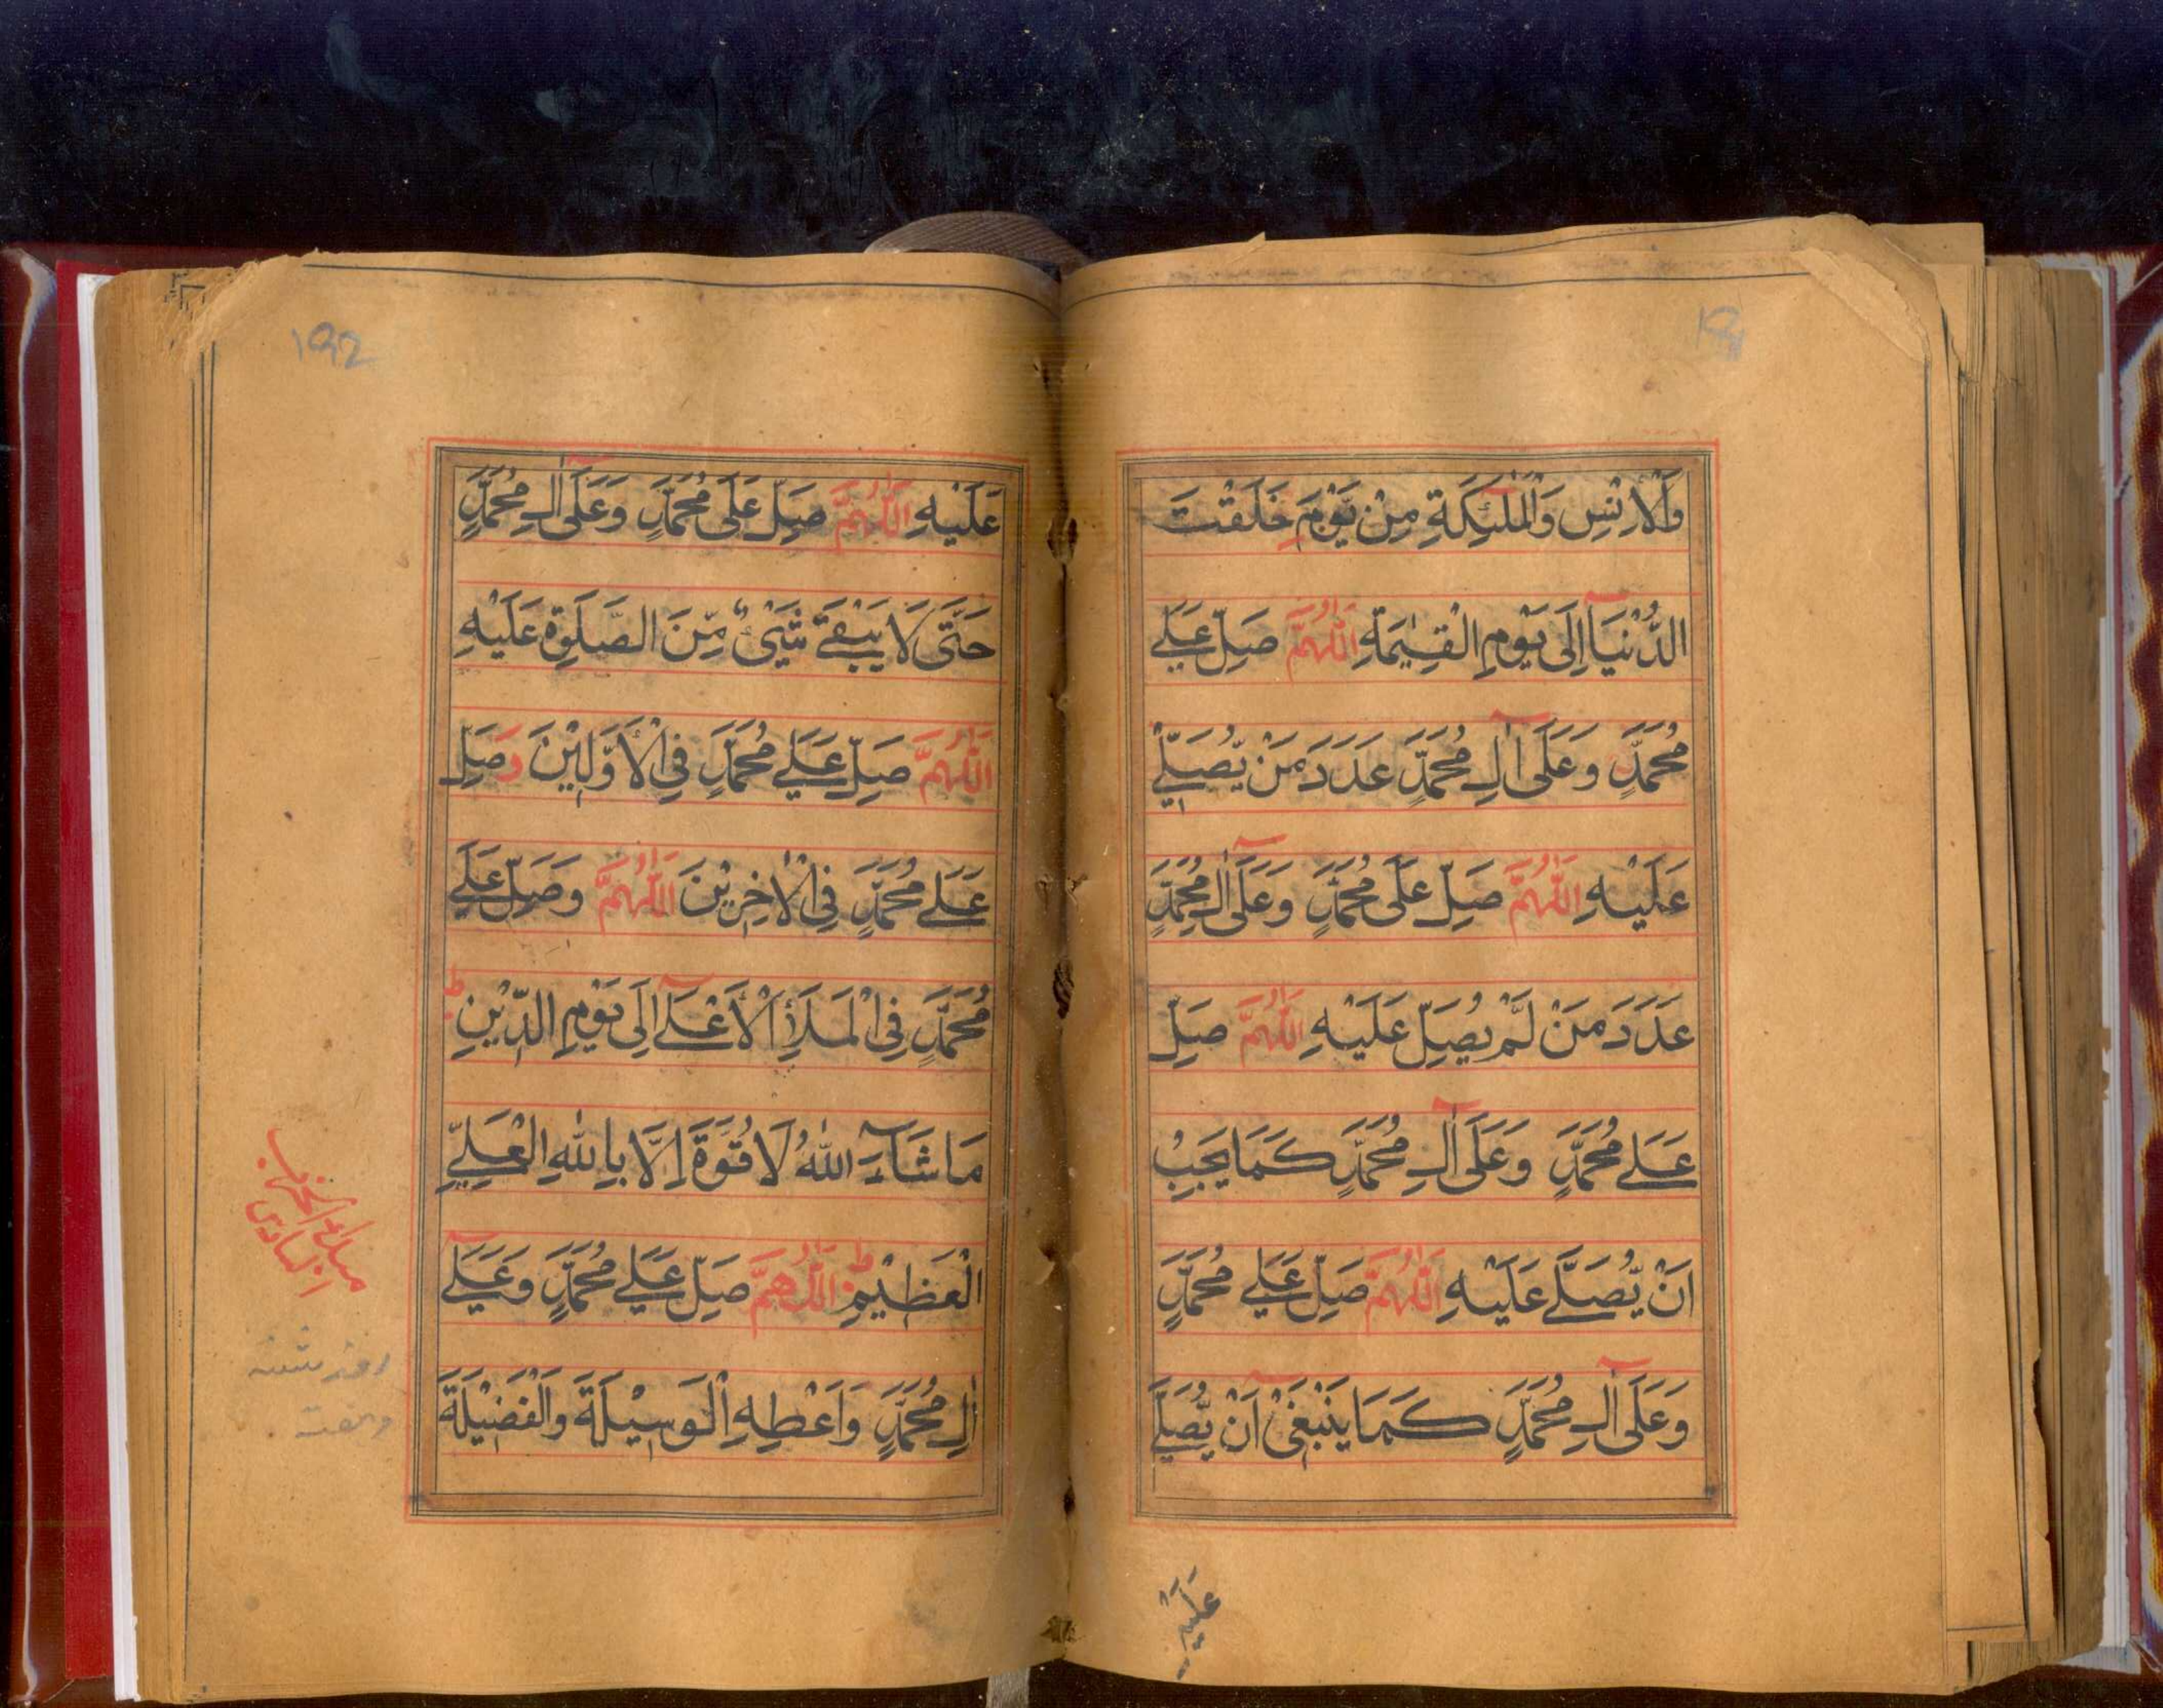 وَالْاِنْسِ وَالْمَلٰٓئِكَةِ مِنْ يَّوْمِ خَلَقْتَ
الدُّنْيَآ اِلَى يَوْمِ الْقِيٰمَةِ اَللّٰهُمَّ صَلِّ عَلٰے
مُحَمَّدٍ وَعَلَىٓ اٰلِ مُحَمَّدٍ عَدَدَ مَنْ يُّصَلِّيْ
عَلَيْهِ اَللّٰهُمَّ صَلِّ عَلَى مُحَمَّدٍ وَعَلَىٓ اٰلِ مُحَمَّدٍ
عَدَدَ مَنْ لَّمْ يُصَلِّ عَلَيْهِ اَللّٰهُمَّ صَلِّ
عَلٰے مُحَمَّدٍ وَعَلَىٓ اٰلِ مُحَمَّدٍ كَمَا يَجِبُ
اَنْ يُّصَلّٰے عَلَيْهِ اَللّٰهُمَّ صَلِّ عَلٰے مُحَمَّدٍ
وَعَلَىٓ اٰلِ مُحَمَّدٍ كَمَا يَنْبَغِيْٓ اَنْ يُّصَلّٰے
عَلَيْهِ
192
عَلَيْهِ اَللّٰهُمَّ صَلِّ عَلَى مُحَمَّدٍ وَعَلَىٓ اٰلِ مُحَمَّدٍ
حَتّٰى لَا يَبْقٰے شَيْءٌ مِّنَ الصَّلٰوةِ عَلَيْهِ
اَللّٰهُمَّ صَلِّ عَلٰے مُحَمَّدٍ فِي الْاَوَّلِيْنَ وَصَلِّ
عَلٰے مُحَمَّدٍ فِي الْاٰخِرِيْنَ اَللّٰهُمَّ وَصَلِّ عَلٰے
مُحَمَّدٍ فِي الْمَلَأِ الْاَعْلٰےٓ اِلَى يَوْمِ الدِّيْنِ ط
مَا شَآءَ اللّٰهُ لَا قُوَّةَ اِلَّا بِاللّٰهِ الْعَلِيِّ
الْعَظِيْمِ ط اَللّٰهُمَّ صَلِّ عَلٰے مُحَمَّدٍ وَعَلٰےٓ
اٰلِ مُحَمَّدٍ وَاَعْطِهِ الْوَسِيْلَةَ وَالْفَضِيْلَةَ